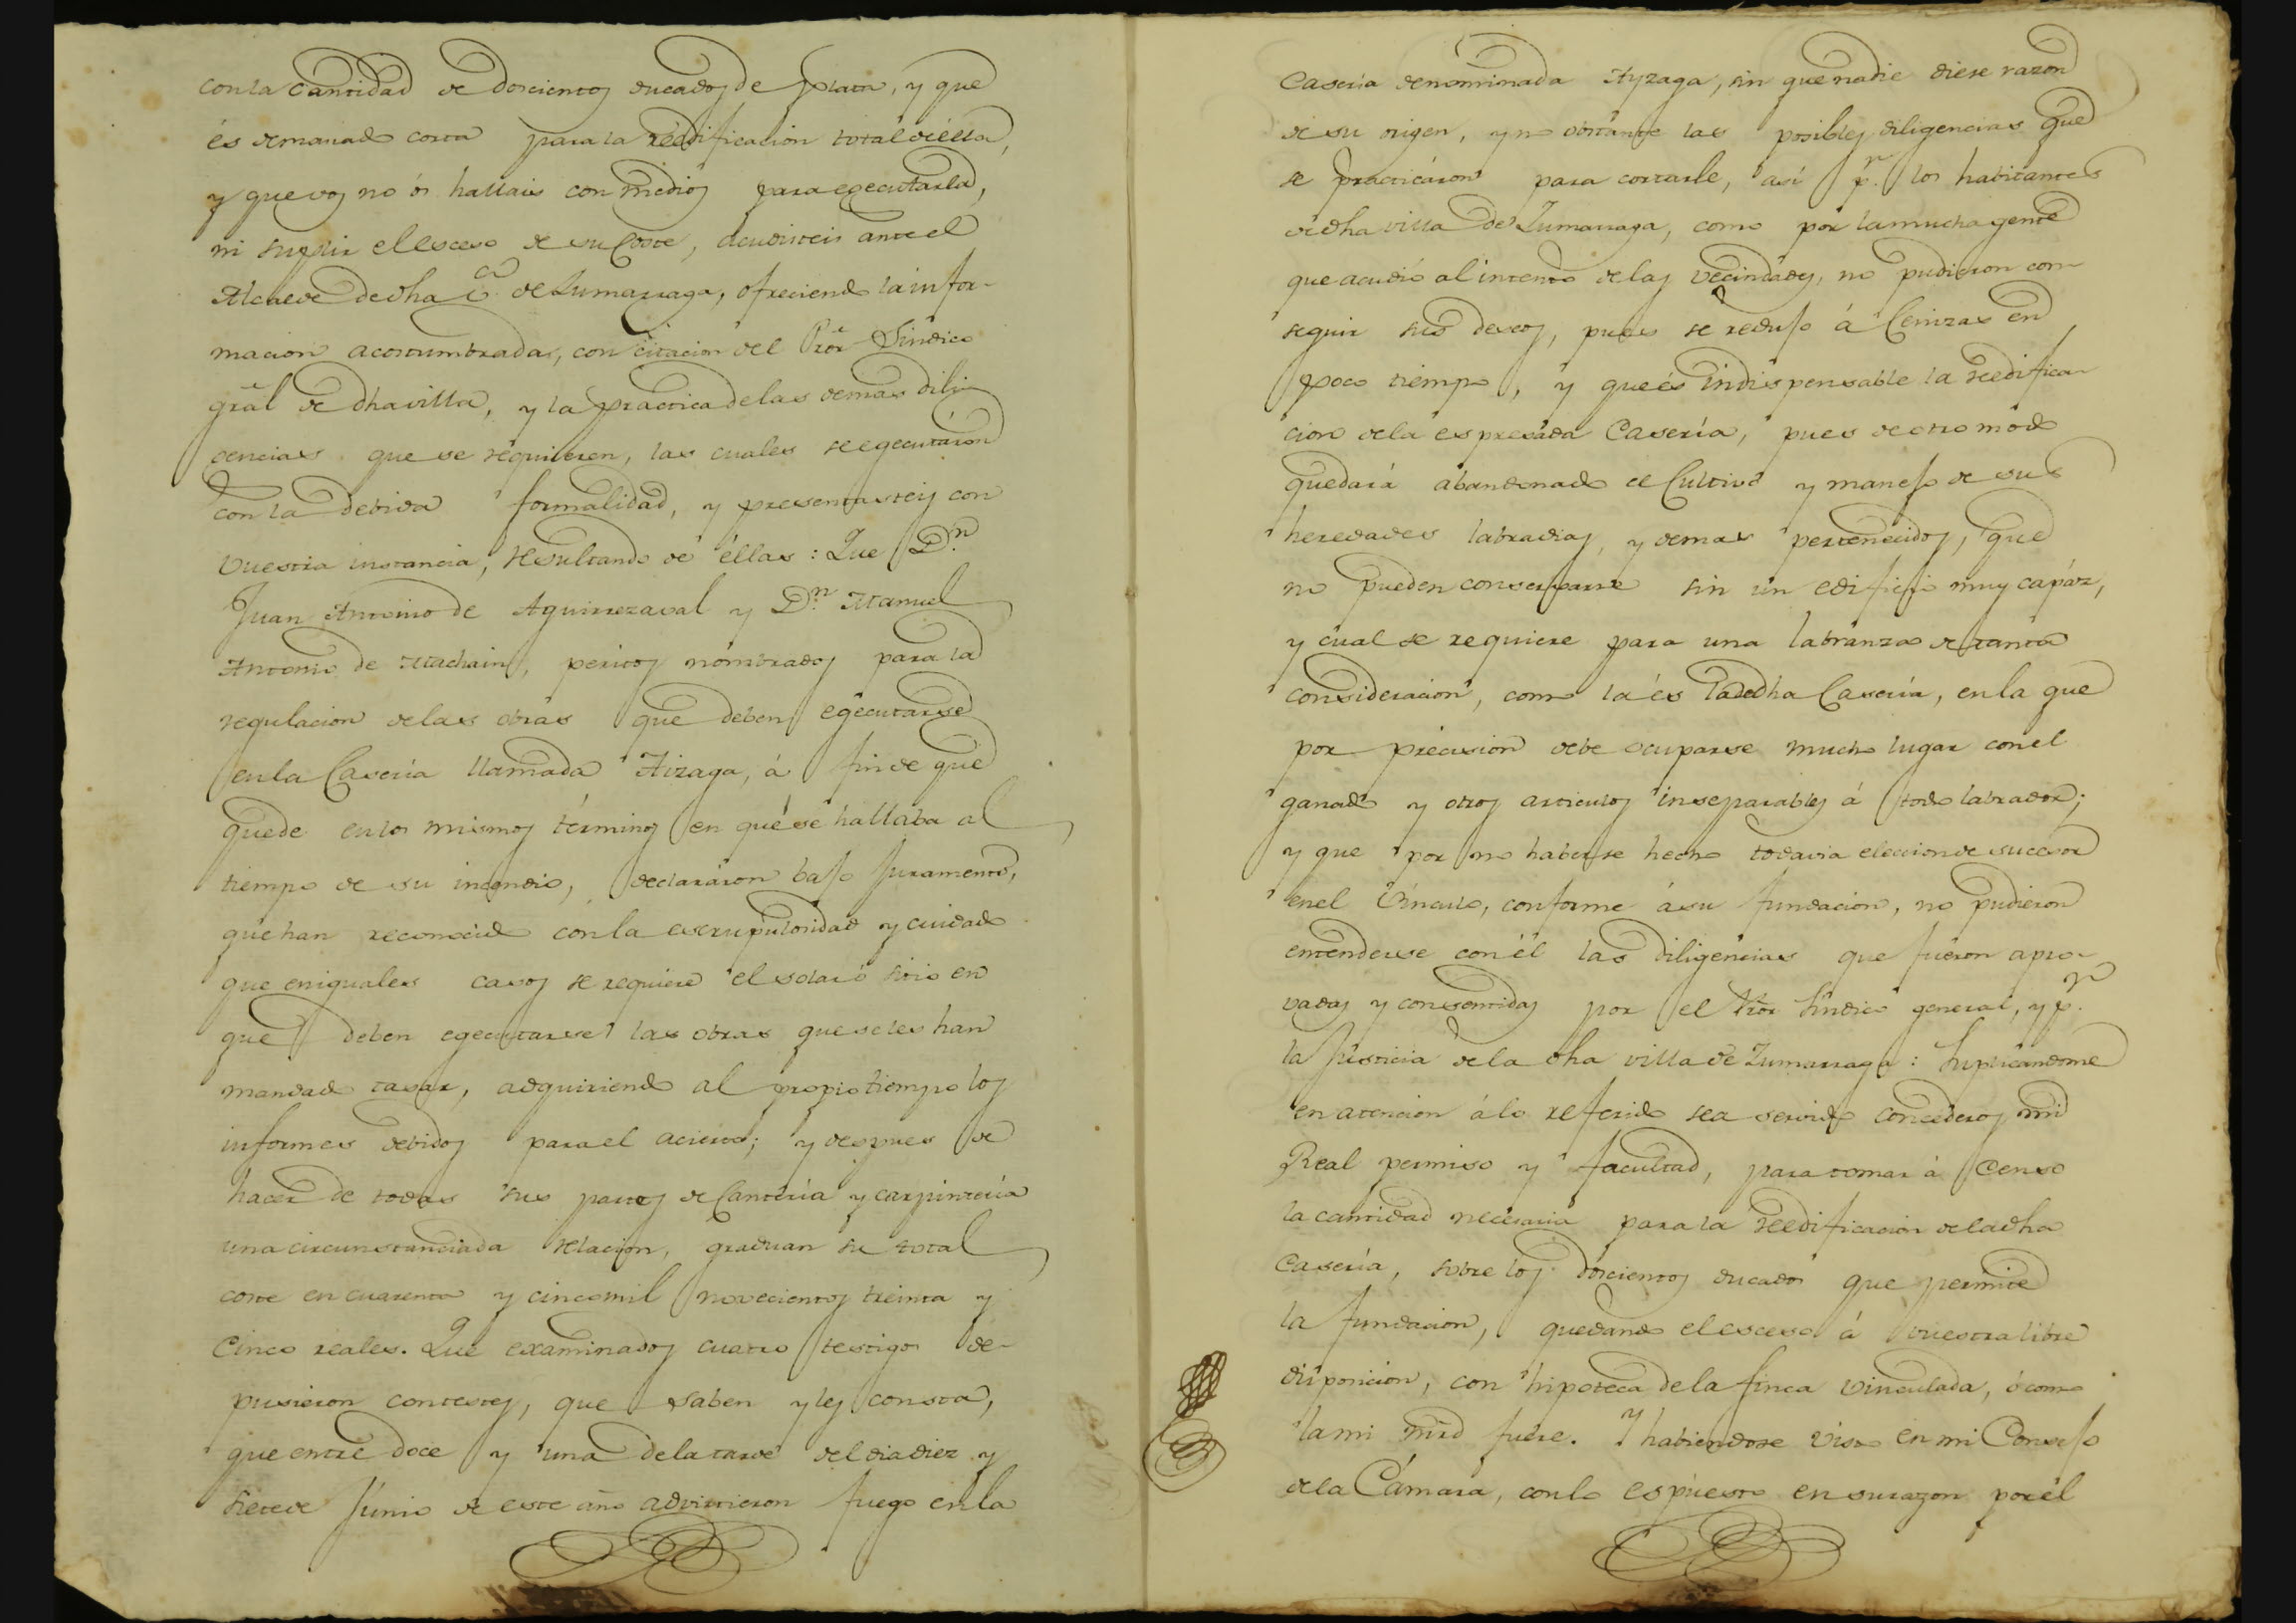 con la cantidad de doscientos ducados de plata, y que
és demasiado corta para la reédificacion totál de élla,
y que vos no ós hallais con medios para egecutarla,
ni suplir el esceso de su Coste, acudisteis ante el
Alcalde de dha va de Zumarraga, ofreciendo la infor-
macion acostumbrada, con citacion del Pror Sindico
gral de dha villa, y la practica de las demas dili-
gencias que se requieren, las cuales se egecutáron
con la debida formalidad, y presentasteis con
vuestra instancia, resultando de éllas: Que Dn
Juan Antonio de Aguirrezaval y Dn Manuel
Antonio de Machain, peritos nombrados para la
regulacion de las obras que deben egecutarse
en la Casería llamada Aizaga, á fin de que
quede en los mismos términos en que se hallaba al
tiempo de su incendio, declaráron bajo juramento,
que han reconocido con la escrupulosidad y cuidado
que en iguales casos se requiere el solar ó sitio en
que deben egecutarse las obras que se les han
mandado tasar, adquiriendo al propio tiempo los
informes debidos para el acierto; y despues de
hacer de todas sus partes de Cantería y carpintería
una circunstanciada relacion, graduan su total
coste en cuarenta y cinco mil novecientos treinta y
Cinco reales. Que examinados cuatro testigos de-
pusieron contestes, que saben y les consta,
que entre doce y una de la tarde del dia diez y
siete de Junio de este año advirtieron fuego en la
Casería denominada Ayzaga, sin que nadie diese razon
de su origen, y no obstante las posibles diligencias que
se practicáron para cortarle, así pr. los habitantes
de dha villa de Zumarraga, como por la mucha gente
que acudió al intento de las vecindades, no pudieron con-
seguir sus deseos, pues se redujo á Cenizas en
poco tiempo, y que és indispensable la reedifica-
cion de la espresada Casería, pues de otro modo
quedará abandonado el Cultivo y manejo de sus
heredades labradias, y demas pertenecidos, que
no pueden conservarse sin un edificio muy capáz,
y cual se requiere para una labranza de tanta
consideracion, como la és la de dha Casería, en la que
por precision debe ocuparse mucho lugar con el
ganado y otros articulos inseparables á todo labrador;
y que por no haberse hecho todavia eleccion de succesor
en el Vínculo, conforme á su fundacion, no pudieron
entenderse con él las diligencias que fuéron apro-
vadas y consentidas por el Pror Síndico general, y pr.
la Justicia de la dha villa de Zumarraga: Suplicandome
en atencion á lo referido sea servido concederos mi
Real permiso y facultad, para tomar á Censo
la cantidad necesaria para la reedificacion de la dha
Casería, sobre los doscientos ducados que permite
la fundacion, quedando el esceso á vuestra libre
disposicion, con hipoteca de la finca vinculada, ó como
la mi mrd fuere. Y habiendose visto en mi Consejo
de la Cámara, con lo espuesto en su razon por el